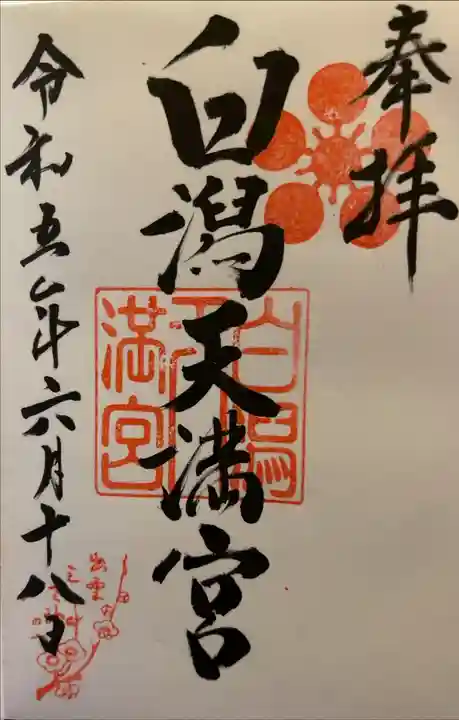 奉拝
白潟天満宮
白潟
天
満宮
令和五年六月十八日